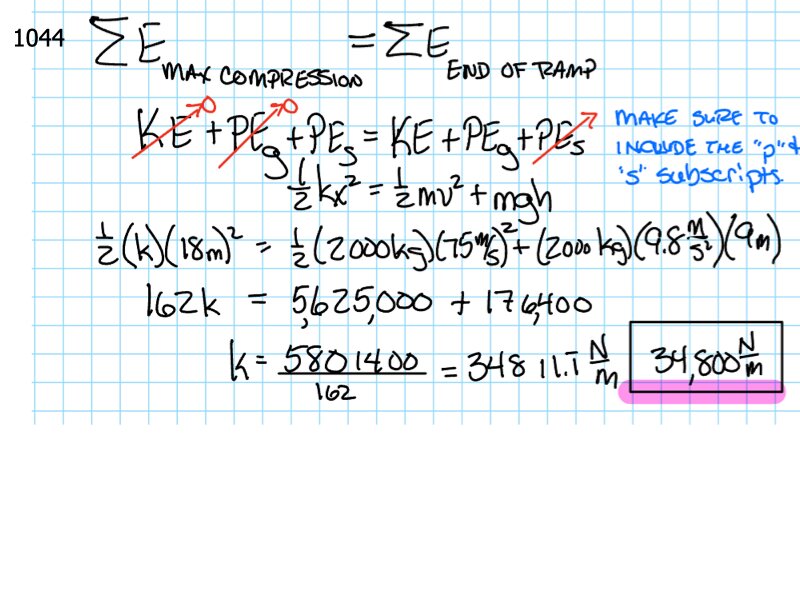 1044 ΣE MAX COMPRESSION = ΣE END OF RAMP
KE + PEg + PEs = KE + PEg + PEs
0 0
MAKE SURE TO
INCLUDE THE "p" &
"s" subscripts.
1/2 kx² = 1/2 mv² + mgh
1/2 (k)(18m)² = 1/2 (2000kg)(75 m/s)² + (2000 kg)(9.8 m/s²)(9m)
162k = 5,625,000 + 176,400
k = 5801400/162 = 34811.1 N/m 34,800 N/m